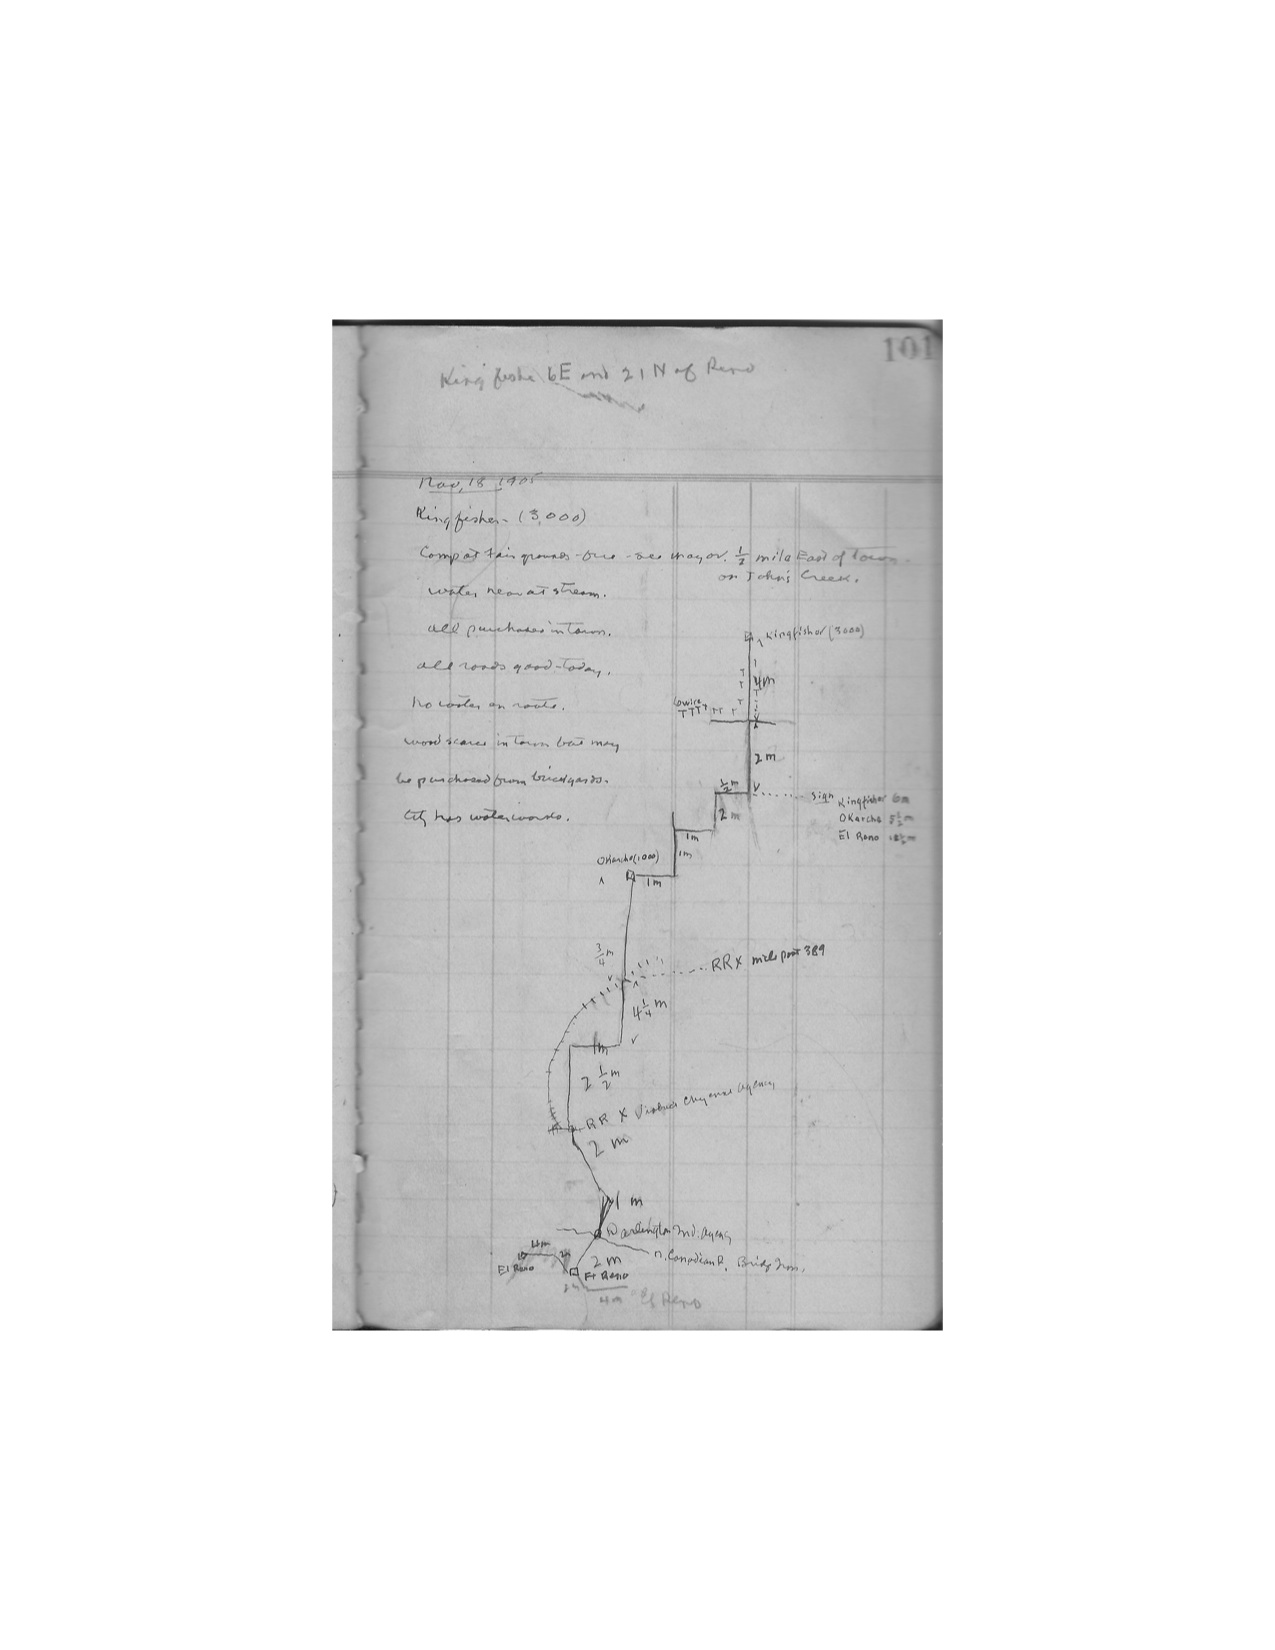 101
Kingfisher 6E and 21N of Reno
Nov, 18, 1905
Kingfisher - (3,000)
Camp at Fair grounds - see mayor. 1/2 mile East of Town
on John's Creek.
water near at stream.
all purchases in town.
all roads good - today.
No water en route.
wood scarce in town but may
be purchased from brickyards.
City has waterworks.
Kingfisher (3000)
4m
6 wire
2m
1/2 m
sign Kingfisher 6m
OKarche 5 1/2 m
El Reno
2 m
1m
1m
OKarche (1000)
1m
3/4 m
RR X mile post 389
4 1/4 m
1m
2 1/2 m
RR X Cheyenne agency
2 m
1 m
Darlington Ind. agency
N. Canadian R. Bridge Iron.
4m
2m
El Reno
2 m
Ft Reno
2m
4m El Reno